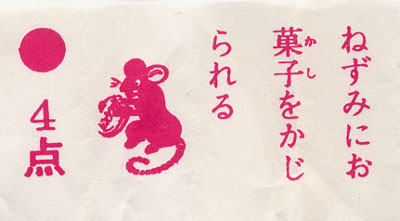 ねずみにお
菓子をかじ
かし
られる
4点